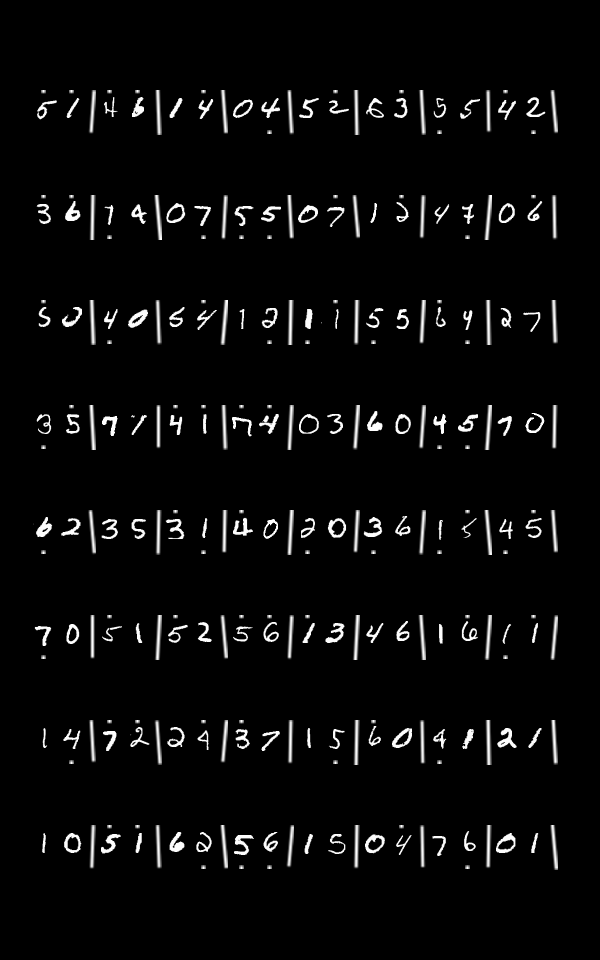 5̇ 1̇ | 4̇ 6̇ | 1 4̇ | 0 4̣ | 5 2̇ | 6 3̇ | 5̇ 5 | 4 2̣ |
3̇ 6̇ | 1̣ 4 | 0 7̣ | 5̣ 5̣ | 0 7̇ | 1 2̇ | 4 7̣ | 0 6̇ |
5̇ 0 | 4̣ 0 | 5 4̇ | 1 2̣ | 1̣ 1 | 5̣ 5 | 6̇ 4̣ | 2 7 |
3̣ 5̇ | 7 7 | 4̇ 1̇ | 7̇ 4̇ | 0 3 | 6 0 | 4̣ 5̣ | 7 0 |
6̣ 2 | 3 5 | 3̇ 1̣ | 4̇ 0 | 2̣ 0 | 3̣ 6 | 1̣ 5 | 4̣ 5̇ |
7̣ 0 | 5̇ 1 | 5̇ 2 | 5̇ 6̇ | 1̇ 3 | 4 6 | 1 6̇ | 1̣ 1̇ |
1 4̣ | 7̇ 2̇ | 2 4̇ | 3̇ 7 | 1 5̣ | 6̇ 0 | 4̇ 1 | 2 1 |
1 0 | 5̇ 1̇ | 6 2̣ | 5̣ 6̣ | 1 5 | 0 4̇ | 7 6̣ | 0 1 |